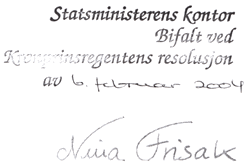 Statsministerens kontor
Bifalt ved
Kronprinsregentens resolusjon
av 6. februar 2004
Nina Frisak